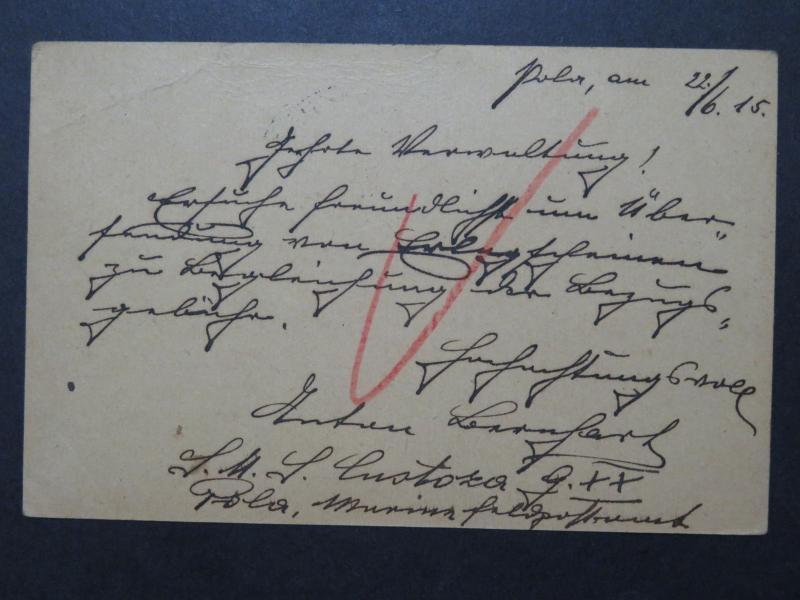 Pola, am 22./6. 15.
Geehrte Verwaltung!
Ersuche freundlichst um Über-
sendung von Erlagscheinen
zu Begleichung der Bezugs-
gebühr.
Hochachtungsvoll
Anton Bernhart
S. M. S. Custoza G. XX
Pola, Marinefeldpostamt